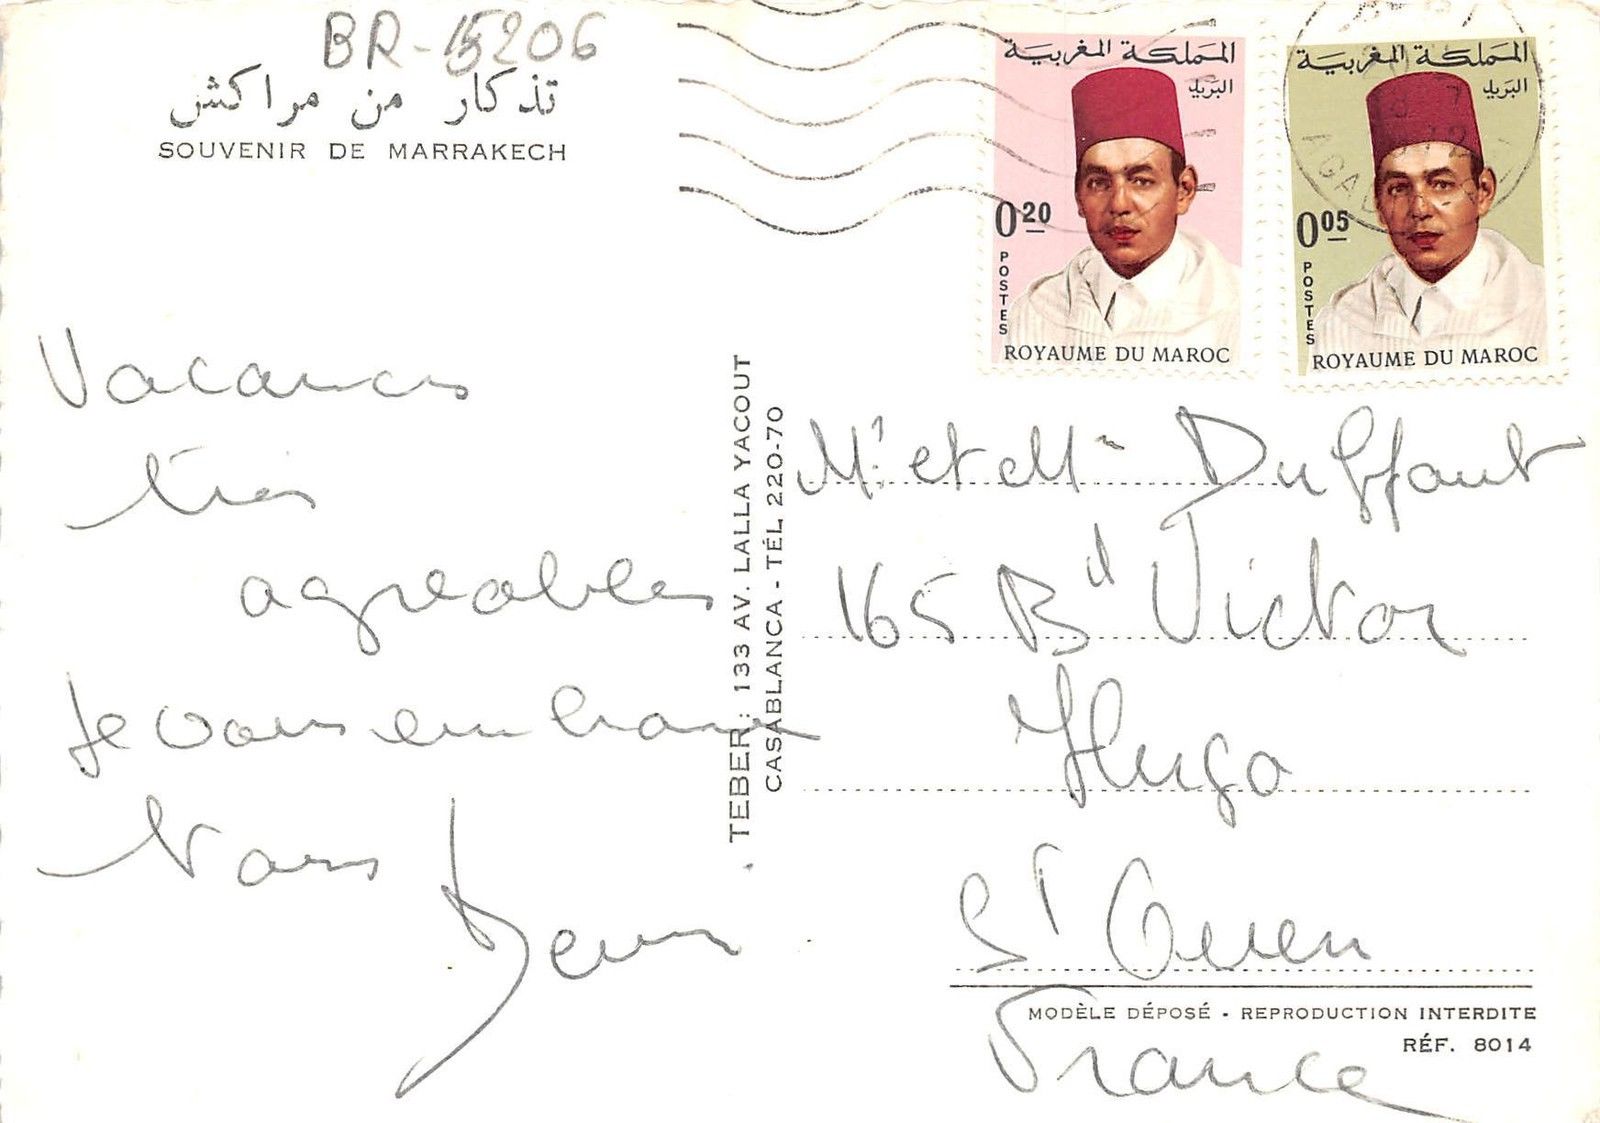 BR-15206
تذكار من مراكش
SOUVENIR DE MARRAKECH
Vacances
très
agréables
Je vous embrasse
tous
Denis
TEBER : 133 AV. LALLA YACOUT
CASABLANCA - TÉL 220-70
المملكة المغربية
البريد
0.20
POSTES
ROYAUME DU MAROC
المملكة المغربية
البريد
0.05
POSTES
ROYAUME DU MAROC
AGAD
Mr et Mme Duffaut
165 Bd Victor
Hugo
St Ouen
France
MODÈLE DÉPOSÉ - REPRODUCTION INTERDITE
RÉF. 8014